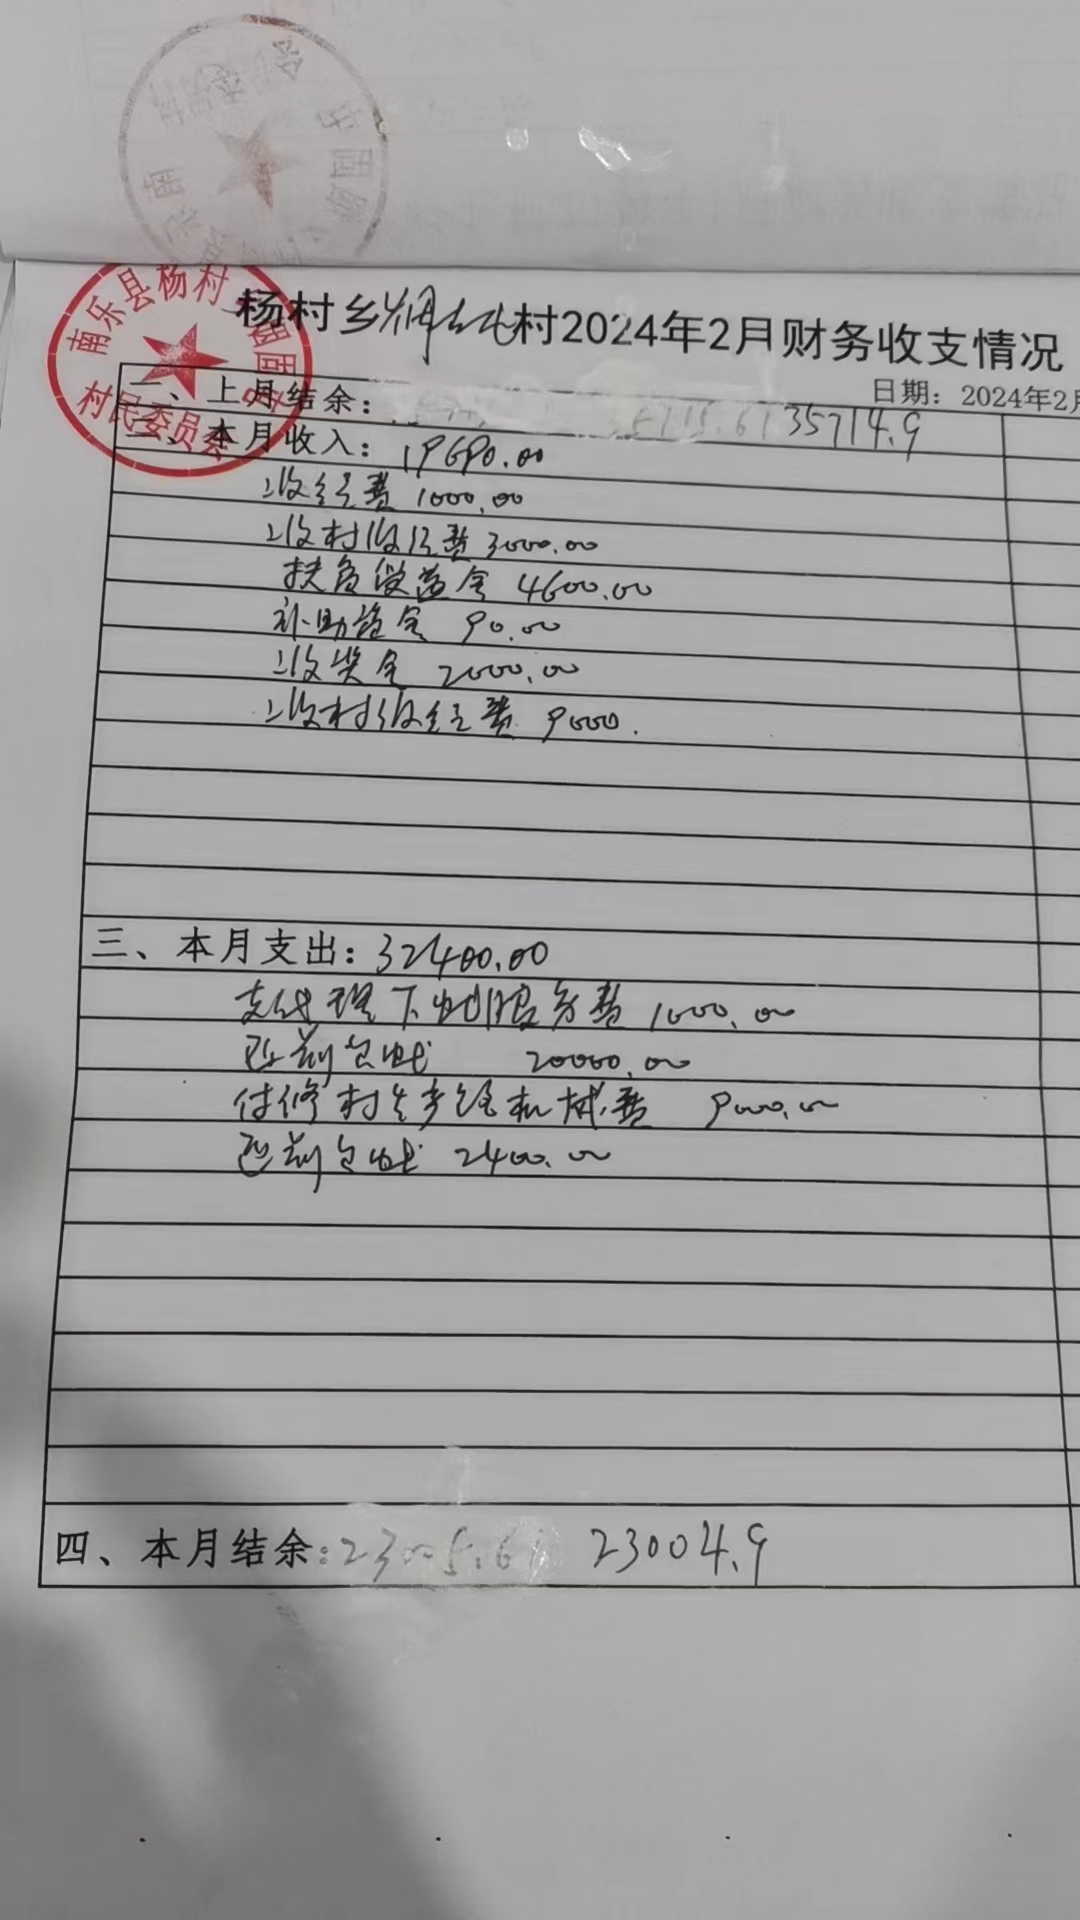 南乐县杨村乡烟固屯
村民委员会
杨村乡烟固屯村2024年2月财务收支情况
日期：2024年2月
一、上月结余： 35714.9
二、本月收入：19690.00
收经费 1000.00
收村级经费 3000.00
扶贫收益金 4600.00
补助资金 90.00
收奖金 2000.00
收村级经费 9000.
三、本月支出：32400.00
支代理 服务费 1000.00
20000.00
付修村生产路机械费 9000.00
2400.00
四、本月结余： 23004.9